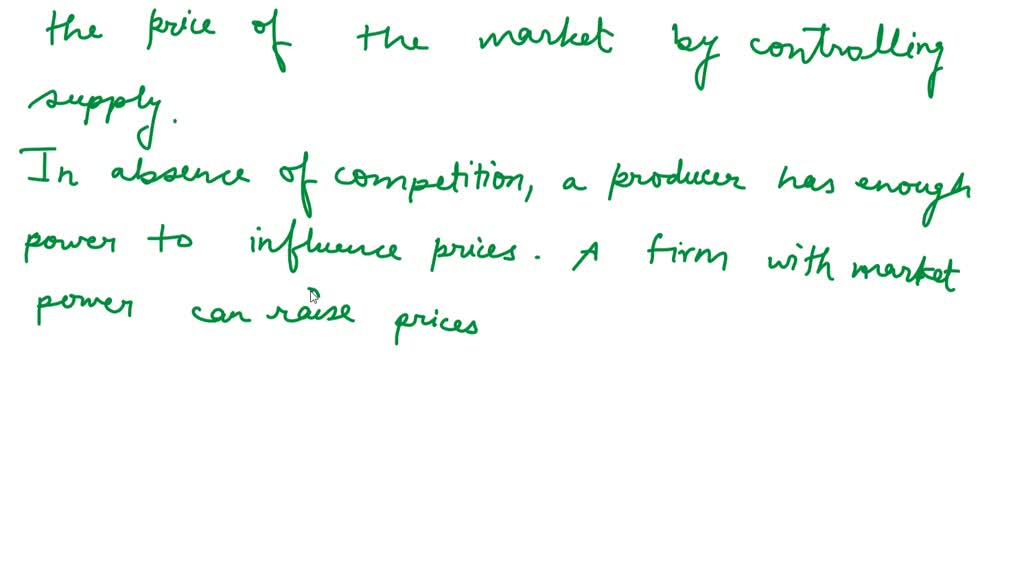 the price of the market by controlling
supply.
In absence of competition, a producer has enough
power to influence prices. A firm with market
power can raise prices